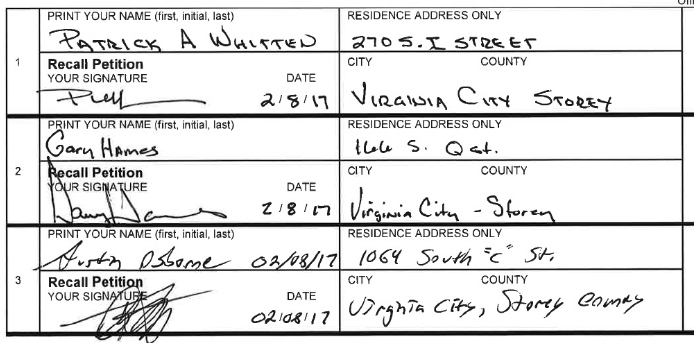 PRINT YOUR NAME (first, initial, last) RESIDENCE ADDRESS ONLY
PATRICK A WHITTEN 270 S. I STREET
1 Recall Petition CITY COUNTY
YOUR SIGNATURE DATE
2/8/17 VIRGINIA CITY STOREY
PRINT YOUR NAME (first, initial, last) RESIDENCE ADDRESS ONLY
Gary Hames S. Q st.
2 Recall Petition CITY COUNTY
YOUR SIGNATURE DATE
2/8/17 Virginia City - Storey
PRINT YOUR NAME (first, initial, last) RESIDENCE ADDRESS ONLY
Austin Osborne 02/08/17 1064 South "C" St.
3 Recall Petition CITY COUNTY
YOUR SIGNATURE DATE
02/08/17 Virginia City, Storey County